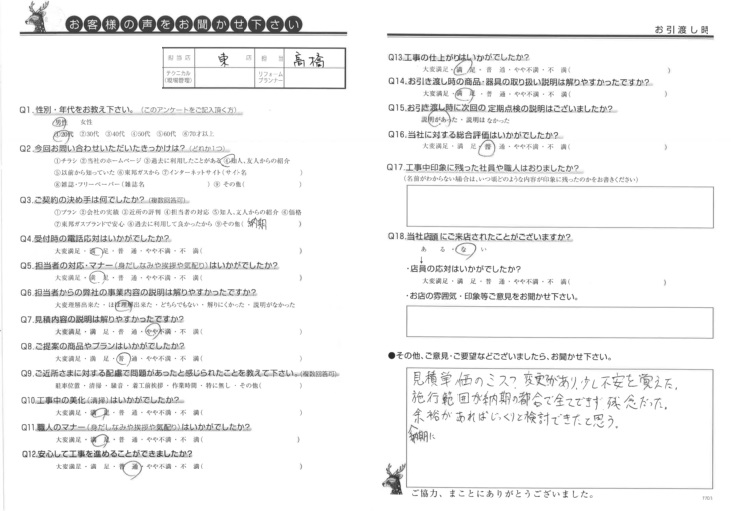 お客様の声をお聞かせ下さい
お引渡し時
担当店 東 店 担当 高橋
テクニカル(現場管理) リフォームプランナー
Q1.性別・年代をお教え下さい。(このアンケートをご記入頂く方)
男性 女性
①20代 ②30代 ③40代 ④50代 ⑤60代 ⑥70才以上
Q2.今回お問い合わせいただいたきっかけは?(どれか1つ)
①チラシ ②当社のホームページ ③過去に利用したことがある ④知人、友人からの紹介
⑤以前から知っていた ⑥東邦ガスから ⑦インターネットサイト(サイト名 )
⑧雑誌・フリーペーパー(雑誌名 ) ⑨その他( )
Q3.ご契約の決め手は何でしたか?(複数回答可)
①プラン ②会社の実績 ③近所の評判 ④担当者の対応 ⑤知人、友人からの紹介 ⑥価格
⑦東邦ガスブランドで安心 ⑧過去に利用して良かったから ⑨その他( 納期 )
Q4.受付時の電話応対はいかがでしたか?
大変満足・満 足・普 通・やや不満・不 満( )
Q5.担当者の対応・マナー(身だしなみや挨拶や気配り)はいかがでしたか?
大変満足・満 足・普 通・やや不満・不 満( )
Q6.担当者からの弊社の事業内容の説明は解りやすかったですか?
大変理解出来た・ほぼ理解出来た・どちらでもない・解りにくかった・説明がなかった
Q7.見積内容の説明は解りやすかったですか?
大変満足・満 足・普 通・やや不満・不 満( )
Q8.ご提案の商品やプランはいかがでしたか?
大変満足・満 足・普 通・やや不満・不 満( )
Q9.ご近所さまに対する配慮で問題があったと感じられたことを教えて下さい。(複数回答可)
駐車位置・清掃・騒音・着工前挨拶・作業時間・特に無し・その他( )
Q10.工事中の美化(清掃)はいかがでしたか?
大変満足・満 足・普 通・やや不満・不 満( )
Q11.職人のマナー(身だしなみや挨拶や気配り)はいかがでしたか?
大変満足・満 足・普 通・やや不満・不 満( )
Q12.安心して工事を進めることができましたか?
大変満足・満 足・普 通・やや不満・不 満( )
Q13.工事の仕上がりはいかがでしたか?
大変満足・満 足・普 通・やや不満・不 満( )
Q14.お引き渡し時の商品・器具の取り扱い説明は解りやすかったですか?
大変満足・満 足・普 通・やや不満・不 満( )
Q15.お引き渡し時に次回の定期点検の説明はございましたか?
説明があった・説明はなかった
Q16.当社に対する総合評価はいかがでしたか?
大変満足・満 足・普 通・やや不満・不 満( )
Q17.工事中印象に残った社員や職人はおりましたか?
(名前がわからない場合は、いつ頃どのような内容が印象に残ったのかをお書きください)
Q18.当社店頭にご来店されたことがございますか?
あ る・な い
↓
・店員の応対はいかがでしたか?
大変満足・満 足・普 通・やや不満・不 満( )
・お店の雰囲気・印象等ご意見をお聞かせ下さい。
●その他、ご意見・ご要望などございましたら、お聞かせ下さい。
見積単価のミス?変更があり、少し不安を覚えた。
施行範囲が納期の都合で全てできず残念だった。
余裕があればじっくりと検討できたと思う。
納期に
ご協力、まことにありがとうございました。